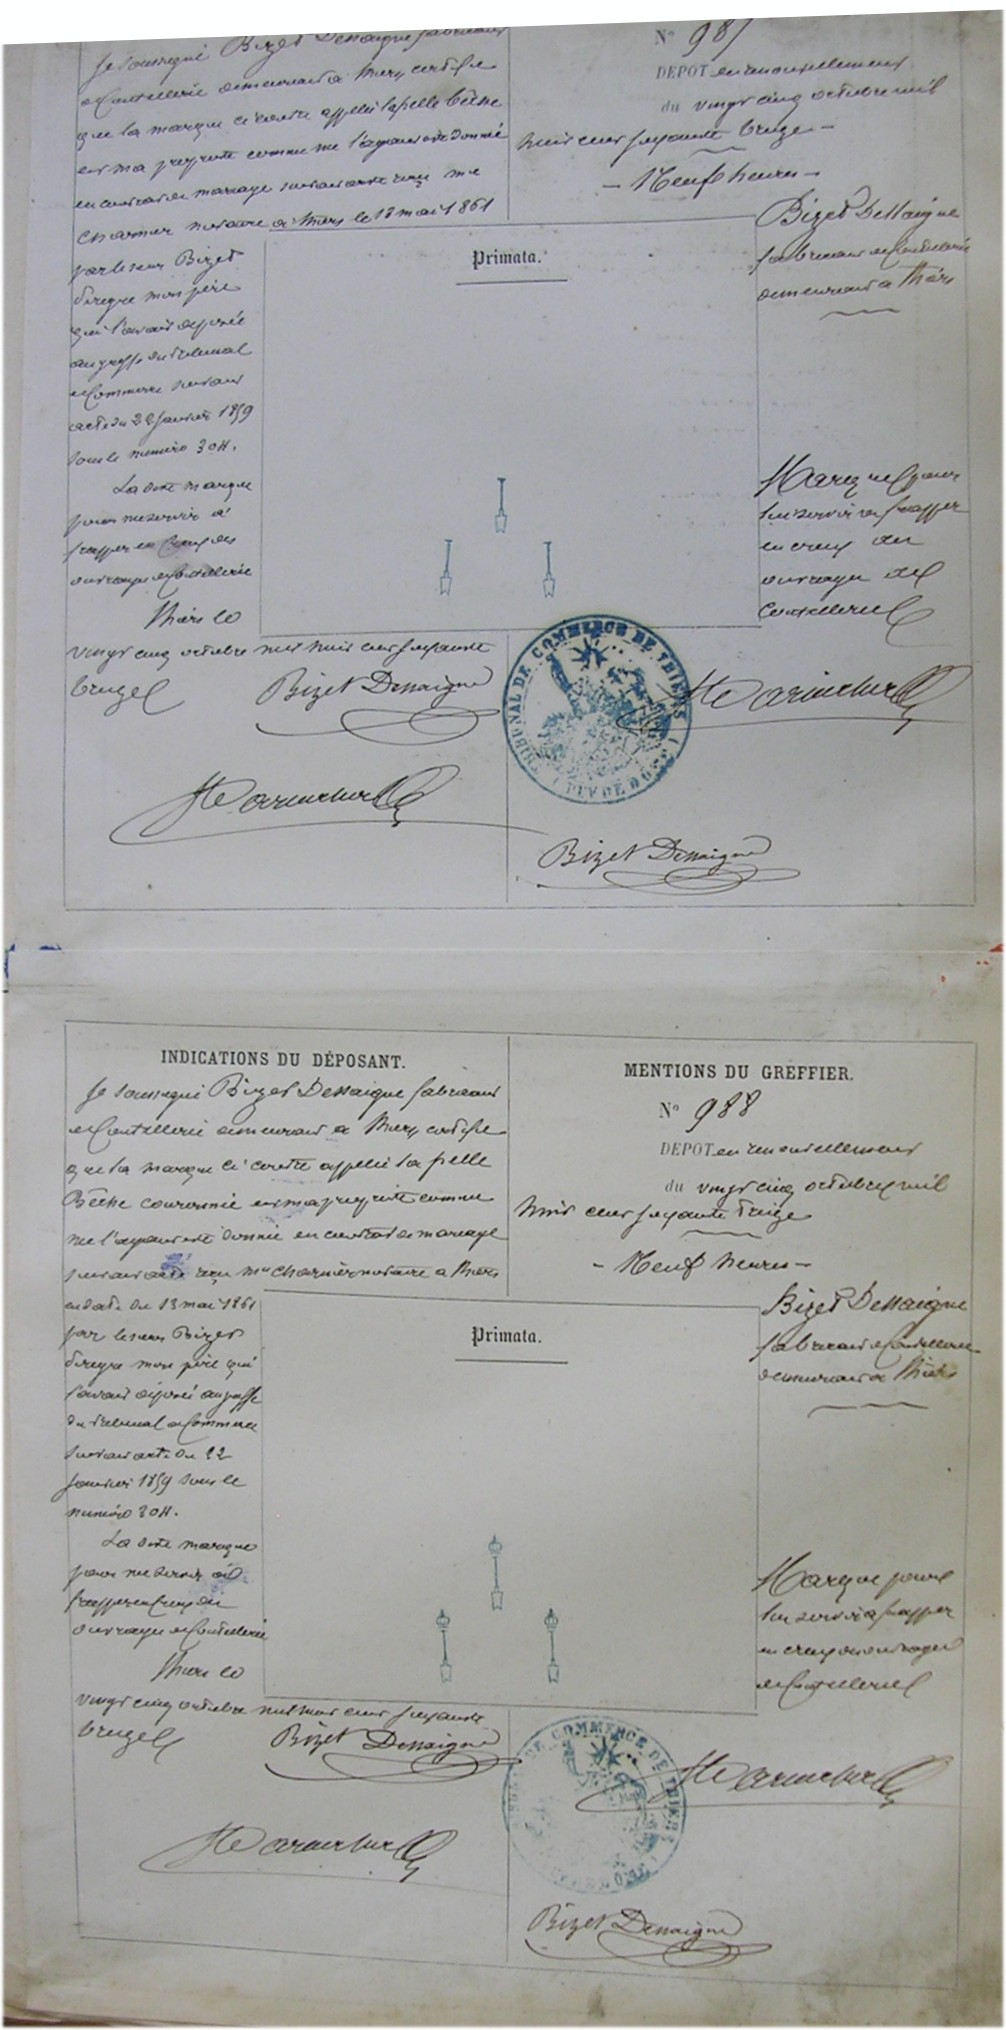 Je soussigné Bizet Dessaigne fabricant
de Coutellerie demeurant à Thiers certifie
que la marque ci contre appellée la pelle bèche
est ma propriété comme me l'ayant été donné
en contrat de mariage suivant acte reçu Me
Charnier notaire à Thiers le 13 mai 1861
par le sieur Bizet
mon père
qui l'avait déposée
au greffe du Tribunal
de Commerce suivant
acte du 22 Janvier 1859
sous le numéro 304.
La dite marque
pour me servir à
frapper en creux des
ouvrages de Coutellerie
Thiers le
vingt cinq octobre mil huit cent soixante
treize
Bizet Dessaigne
N° 987
DEPOT en renouvellement
du vingt cinq octobre mil
huit cent soixante treize
- Neuf heures -
Primata.
Bizet Dessaigne
fabricant de Coutellerie
demeurant à Thiers
Marque pour
lui servir à frapper
en creux des
ouvrages de
Coutellerie
TRIBUNAL DE COMMERCE DE THIERS
(PUY DE DOME)
Bizet Dessaigne
INDICATIONS DU DÉPOSANT.
Je soussigné Bizet Dessaigne fabricant
de Coutellerie demeurant à Thiers certifie
que la marque ci contre appellée la pelle
Bèche couronnée est ma propriété comme
me l'ayant été donnée en contrat de mariage
suivant acte reçu Me Charnier notaire à Thiers
en date du 13 mai 1861
par le sieur Bizet
mon père qui
l'avait déposée au greffe
du Tribunal de Commerce
suivant acte du 22
Janvier 1859 sous le
numéro 304.
La dite marque
pour me servir à
frapper en creux des
ouvrages de Coutellerie
Thiers le
vingt cinq octobre mil huit cent soixante
treize
Bizet Dessaigne
MENTIONS DU GREFFIER.
N° 988
DEPOT en renouvellement
du vingt cinq octobre mil
huit cent soixante treize
- Neuf heures -
Primata.
Bizet Dessaigne
fabricant de Coutellerie
demeurant à Thiers
Marque pour
lui servir à frapper
en creux des ouvrages
de Coutellerie
DE COMMERCE DE THIERS
Bizet Dessaigne